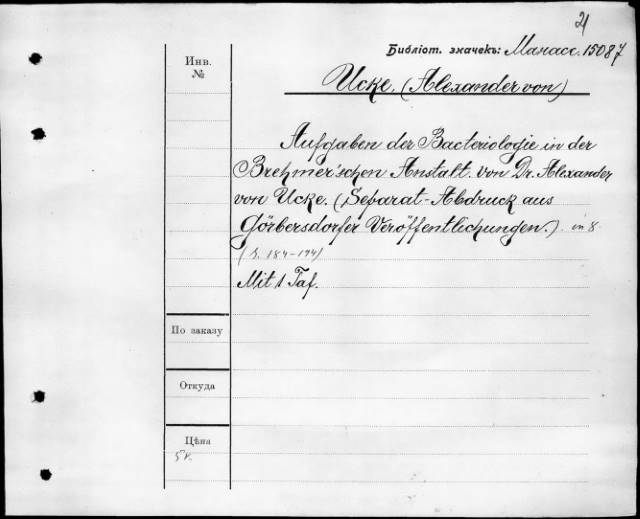 21
Библіот. значекъ: Манасс. 15087
Инв.
№
Ucke, (Alexander von)
Aufgaben der Bacteriologie in der
Brehmer'schen Anstalt. von Dr. Alexander
von Ucke. (Separat-Abdruck aus
Görbersdorfer Veröffentlichungen.) in 8
(S. 184-194)
Mit 1 Taf.
По заказу
Откуда
Цѣна
5 к.